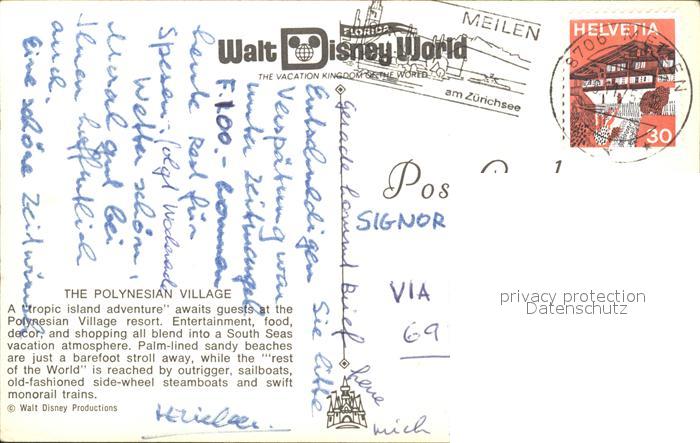 FLORIDA
Walt Disney World
THE VACATION KINGDOM OF THE WORLD
MEILEN
am Zürichsee
HELVETIA
30
8706 MEILEN
Entschuldigen Sie bitte
Verspätung war
unter Zeitmangel
F.100.- kommen
beide Ret für
Spesen, folgt
Wetter schön,
Moral gut bei
Ihnen hoffentlich
auch.
Eine schöne Zeit wünscht
Gerade kommt Brief
freue
mich
Pos
SIGNOR
VIA
69
privacy protection
Datenschutz
THE POLYNESIAN VILLAGE
A "tropic island adventure" awaits guests at the
Polynesian Village resort. Entertainment, food,
decor, and shopping all blend into a South Seas
vacation atmosphere. Palm-lined sandy beaches
are just a barefoot stroll away, while the "'rest
of the World" is reached by outrigger, sailboats,
old-fashioned side-wheel steamboats and swift
monorail trains.
© Walt Disney Productions